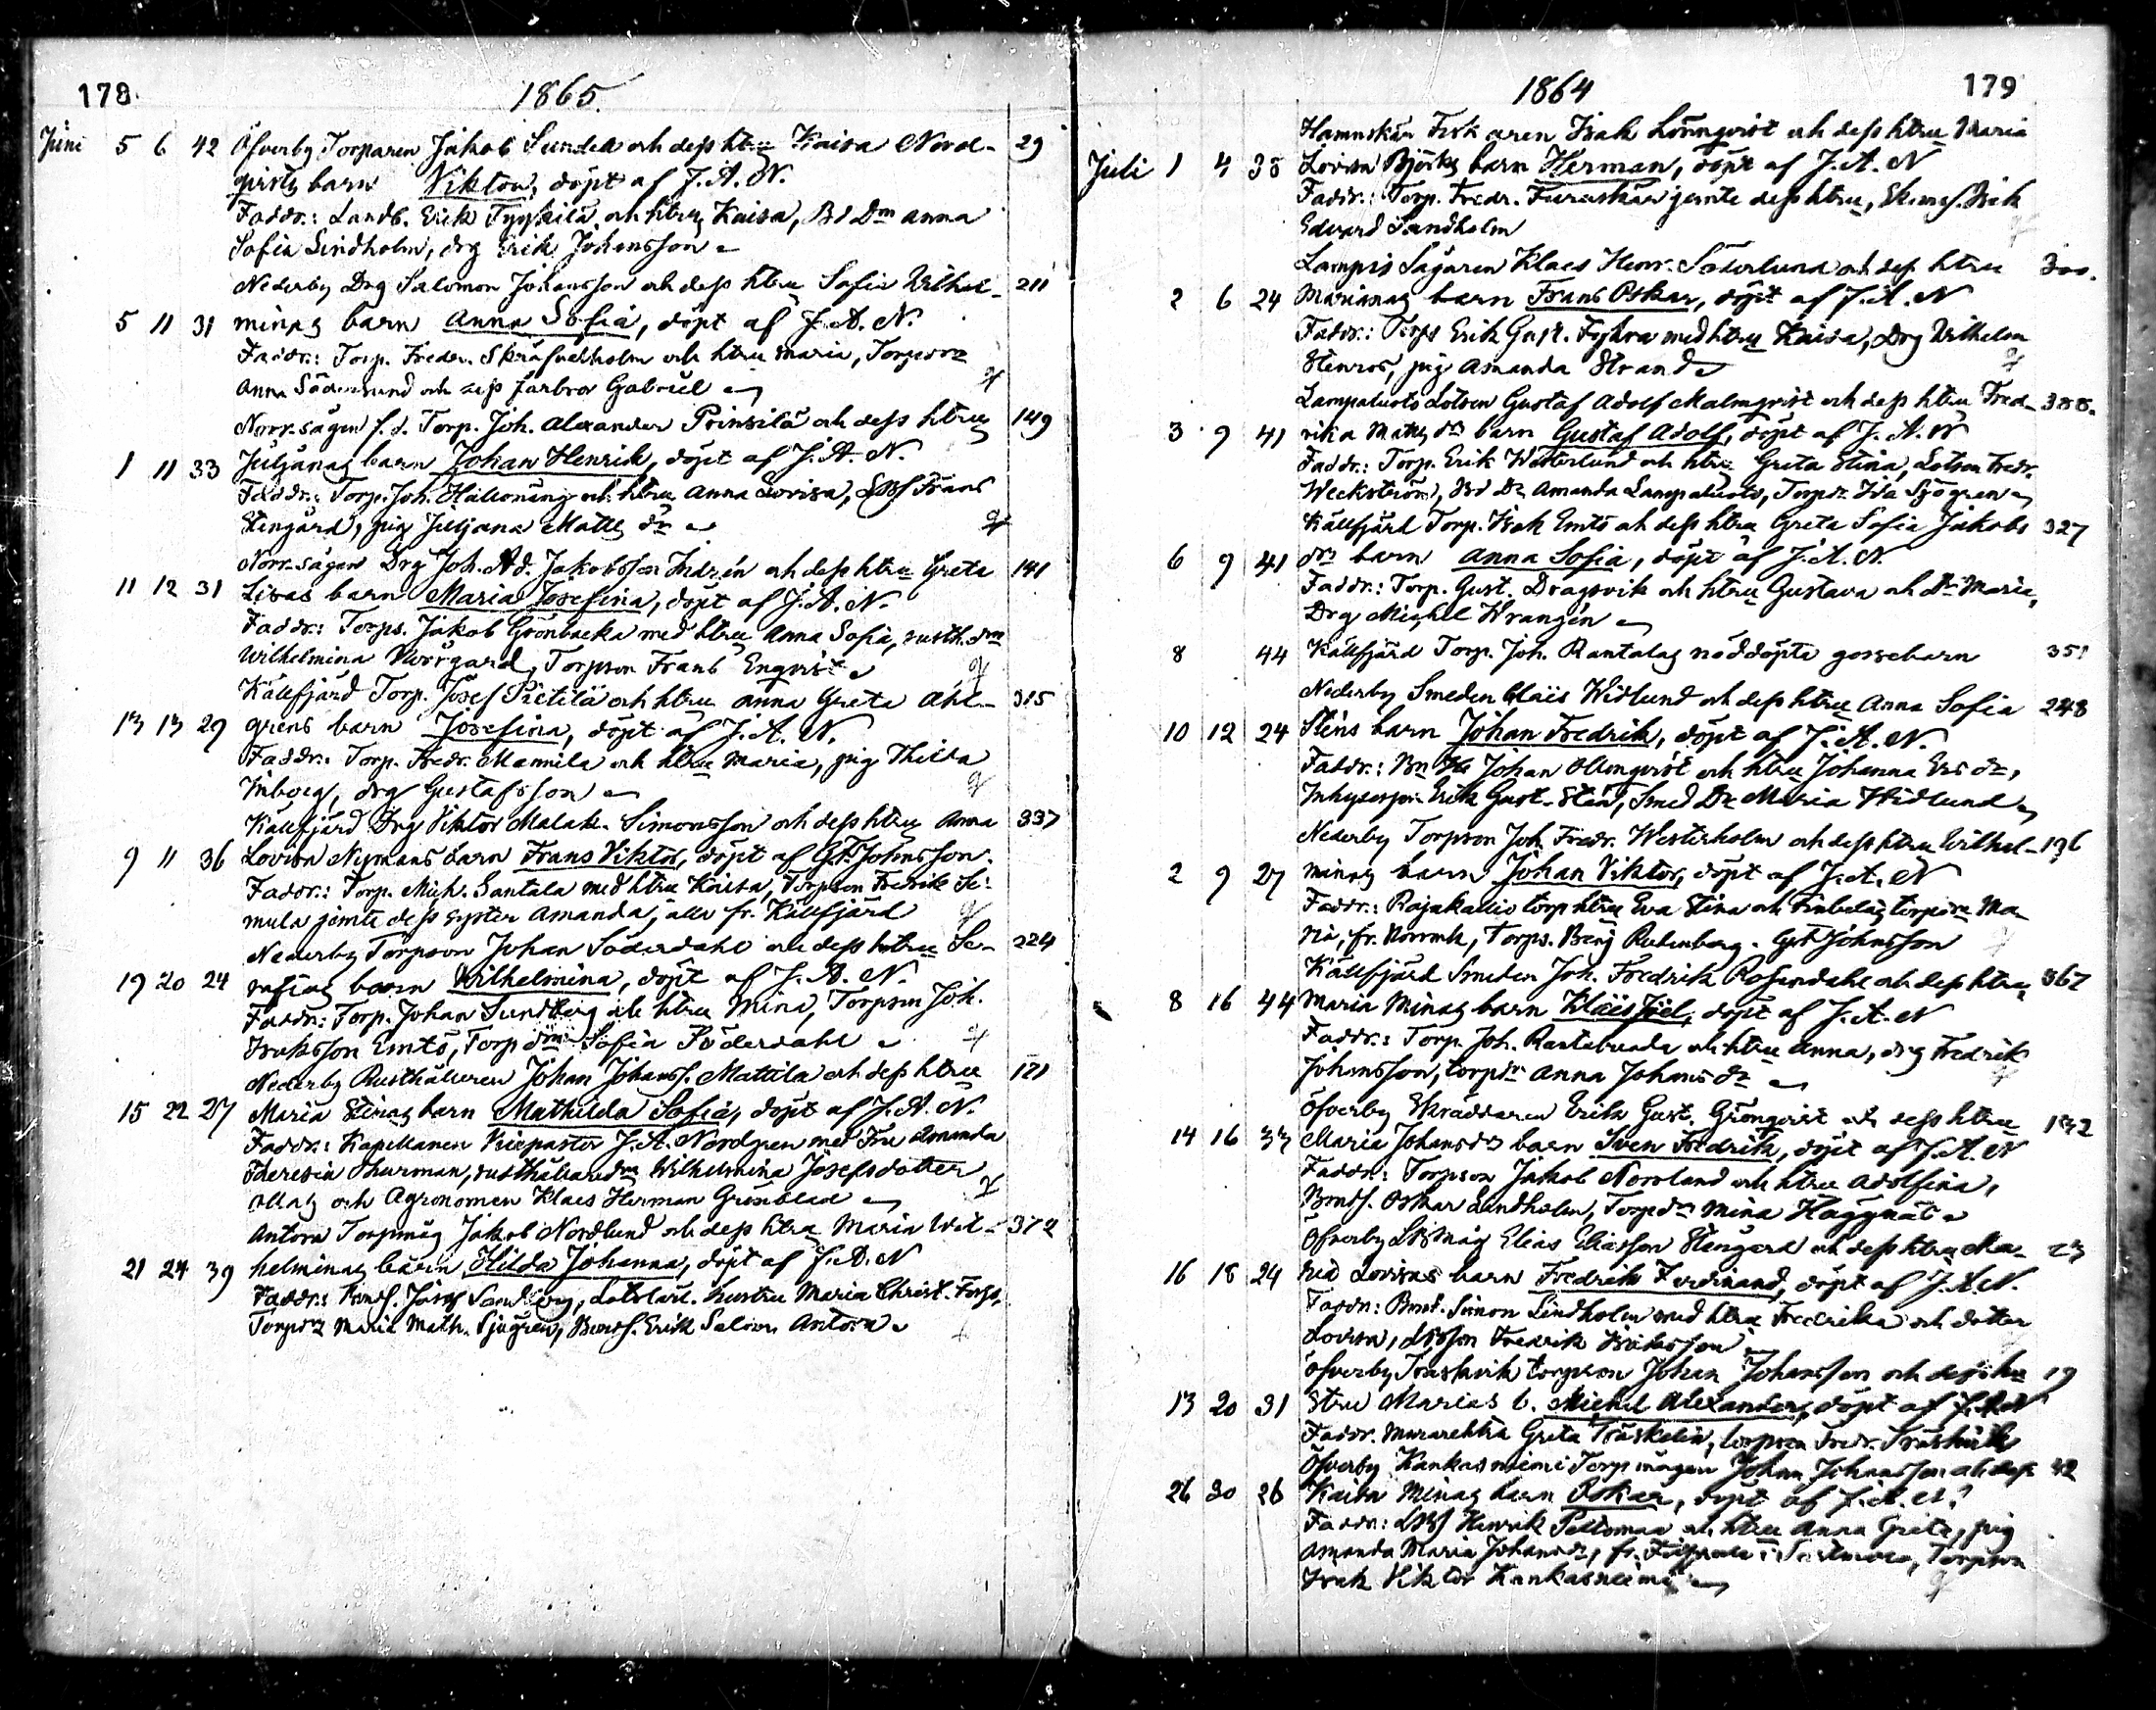 178
1865.
Juni 5 6 42 Öfverby Torparen Jakob Sundell och dess htru Kaisa Nord- 29
qvists barn Viktor, döpt af J. A. N.
Faddr.: Landb. Erik Tyykilä och htru Kaisa, Bd Dm Anna
Sofia Lindholm, drg Erik Johansson
Nederby Drg Salomon Johansson och dess htru Sofia Wilhel- 211
5 11 31 minas barn Anna Sofia, döpt af J. A. N.
Faddr.: Torp. Fredr. och htru Maria, Torpson
Anna Söderlund och dess farbror Gabriel
Norrsågen f. d. Torp. Joh. Alexander Prinsilä och dess htru 149
1 11 33 Juljanas barn Johan Henrik, döpt af J. A. N.
Faddr.: Torp. Joh. och htru Anna Lovisa, Frans
Stengård, pig Juljana Matts dr
Norrsågen Drg Joh. Ad. Jakobsson Indrén och dess htru Greta 141
11 12 31 Lisas barn Maria Josefina, döpt af J. A. N.
Faddr.: Torps. Jakob Grönbacka med htru Anna Sofia, rusth. dm
Wilhelmina Norrgård, Torpson Frans Enqvist
Källfjärd Torp. Josef Pietilä och htru Anna Greta Ahl- 315
13 13 29 grens barn Josefina, döpt af J. A. N.
Faddr.: Torp. Fredr. Mannila och htru Maria, pig Thilda
Inborg, drg Gustafsson
Källfjärd Drg Viktor Malak. Simonsson och dess htru Anna 337
9 11 36 Lovisa Nymans barn Frans Viktor, döpt af Gt. Johnsson.
Faddr.: Torp. Mich. Santala med htru Kaisa, Torpson Fredrik Si-
mula jämte dess syster Amanda, alla fr. Källfjärd
Nederby Torpson Johan Söderdahl och dess htru Se- 224
19 20 24 rafias barn Wilhelmina, döpt af J. A. N.
Faddr.: Torp. Johan Sundberg och htru Mina, Torpson Joh.
Isaksson Emtö, Torp dm Sofia Söderdahl
Nederby Rusthållaren Johan Johanss. Mattila och dess htru 171
15 22 27 Maria Stinas barn Mathilda Sofia, döpt af J. A. N.
Faddr.: Kapellanen Vicepastor J. A. Nordgren med Fru Amanda
Theresia Thurman, rusthållaredm Wilhelmina Josefsdotter
och Agronomen Klaes Herman Grönblad
Antora Torpmåg Jakob Nordlund och dess htru Maria Wil- 372
21 24 39 helminas barn Hilda Johanna, döpt af J. A. N
Faddr.: Bonds. Josef Sandberg, hustru Maria Christ.
Torpdr Maria Math. Sjögren, Bonds. Erik Antora
1864
179
Hamnskär Fiskaren Isak Lönnqvist och dess htru Maria
Juli 1 4 38 Lovisa Björks barn Herman, döpt af J. A. N
Faddr.: Torp. Fredr. Furuskär jemte dess htru, Isak
Edvard Sandholm
Lampis Sågaren Klaes Henr. Söderlund och dess htru 300.
2 6 24 Marianas barn Frans Oskar, döpt af J. A. N
Faddr.: Torps Erik Gust. med htru Kaisa, Drg Wilhelm
Stenros, pig Amanda Strand
Lampaluoto Lotsen Gustaf Adolf Malmqvist och dess htru Fred- 388.
3 9 41 rika Matts dr barn Gustaf Adolf, döpt af J. A. N
Faddr.: Torp. Erik Westerlund och htru Greta Stina, Lotsen Fredr.
Weckström, Bd Dr Amanda Lampaluoto, Torpdr Ida Sjögren
Källfjärd Torp. Isak Emtö och dess htru Greta Sofia Jakobs 327
6 9 41 dr barn Anna Sofia, döpt af J. A. N.
Faddr.: Torp. Gust. Dragsvik och htru Gustava och Dr Maria,
Drg Michel Wrangén
8 44 Källfjärd Torp. Joh. Rantalas nöddöpte gossebarn 351
Nederby Smeden Claës Widlund och dess htru Anna Sofia 248
10 12 24 Stens barn Johan Fredrik, döpt af J. A. N.
Faddr.: Johan Holmqvist och htru Johanna Ers dr,
Inhysesson Erik Gust. Sten, Smed Dr Maria Widlund
Nederby Torpson Joh. Fredr. Westerholm och dess htru Wilhel- 196
2 9 27 minas barn Johan Viktor, döpt af J. A. N
Faddr.: Rajakallio torp htru Eva Stina och torpdr Ma-
ria, fr. Norrmk, Torps. Benj Rutenberg. Gt Johnsson
Källfjärd Smeden Joh. Fredrik Rosendahl och dess htru 367
8 16 44 Maria Minas barn Klaës Joel, döpt af J. A. N
Faddr.: Torp. Joh. och htru Anna, drg Fredrik
Johnsson, torpdr Anna Johans dr
Öfverby Skräddaren Erik Gust. Grönqvist och dess htru 132
14 16 33 Maria Johansdrs barn Sven Fredrik, döpt af J. A. N
Faddr.: Torpson Jakob Norrland och htru Adolfina,
Bonds. Oskar Lindholm, Torpdr Mina Häggnät
Öfverby måg Elias Eliasson Stengård och dess htru Ma- 23
16 18 24 ria Lovisas barn Fredrik Ferdinand, döpt af J. A. N.
Faddr.: Bond. Simon Lindholm med htru Fredrika och dotter
Lovisa, Fredrik Isaksson
Öfverby Träskvik torpson Johan Johansson och dess hu 19
13 20 31 stru Marias b. Michel Alexander, döpt af J. A. N
Faddr. Murarehtru Greta Träskelin, torpson Fredr. Träskvik
Öfverby Kankasniemi Torpmågen Johan Johansson och dess 42
26 30 26 Kaisa Minas barn Oskar, döpt af J. A. N.
Faddr.: Henrik Peltomaa och htru Anna Greta, pig
Amanda Maria Johansdr, fr. i Sastmola, Torpson
Isak Viktor Kankasniemi